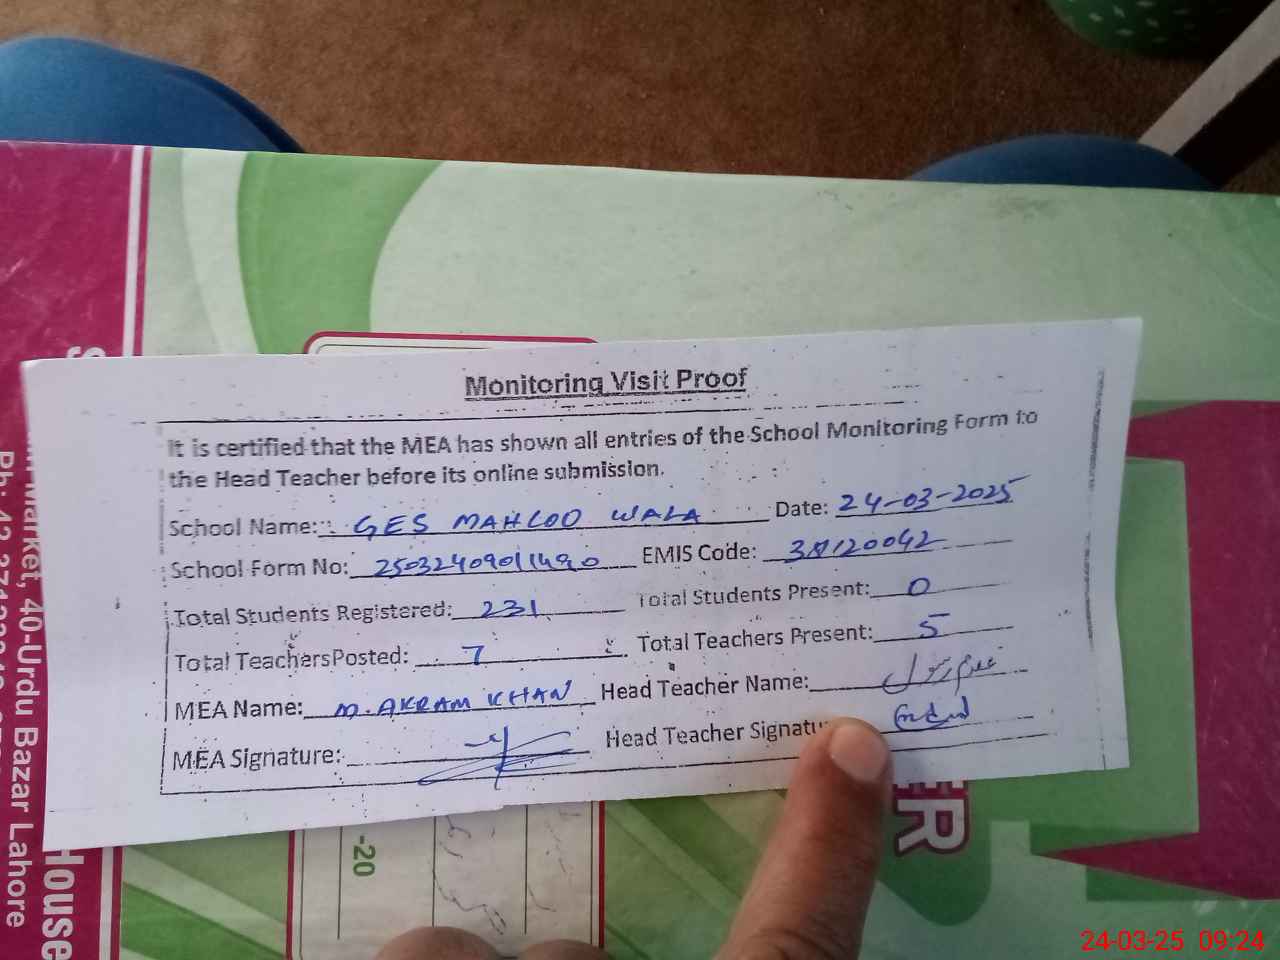 Monitoring Visit Proof
It is certified that the MEA has shown all entries of the School Monitoring Form to
the Head Teacher before its online submission.
School Name: GES MAHLOO WALA Date: 24-03-2025
School Form No: 2503240901490 EMIS Code:
Total Students Registered: 231 Total Students Present: 0
Total TeachersPosted: 7 Total Teachers Present: 5
MEA Name: M. AKRAM KHAN Head Teacher Name:
MEA Signature: Head Teacher
Market, 40-Urdu Bazar Lahore
House
-20
ER
24-03-25 09:24